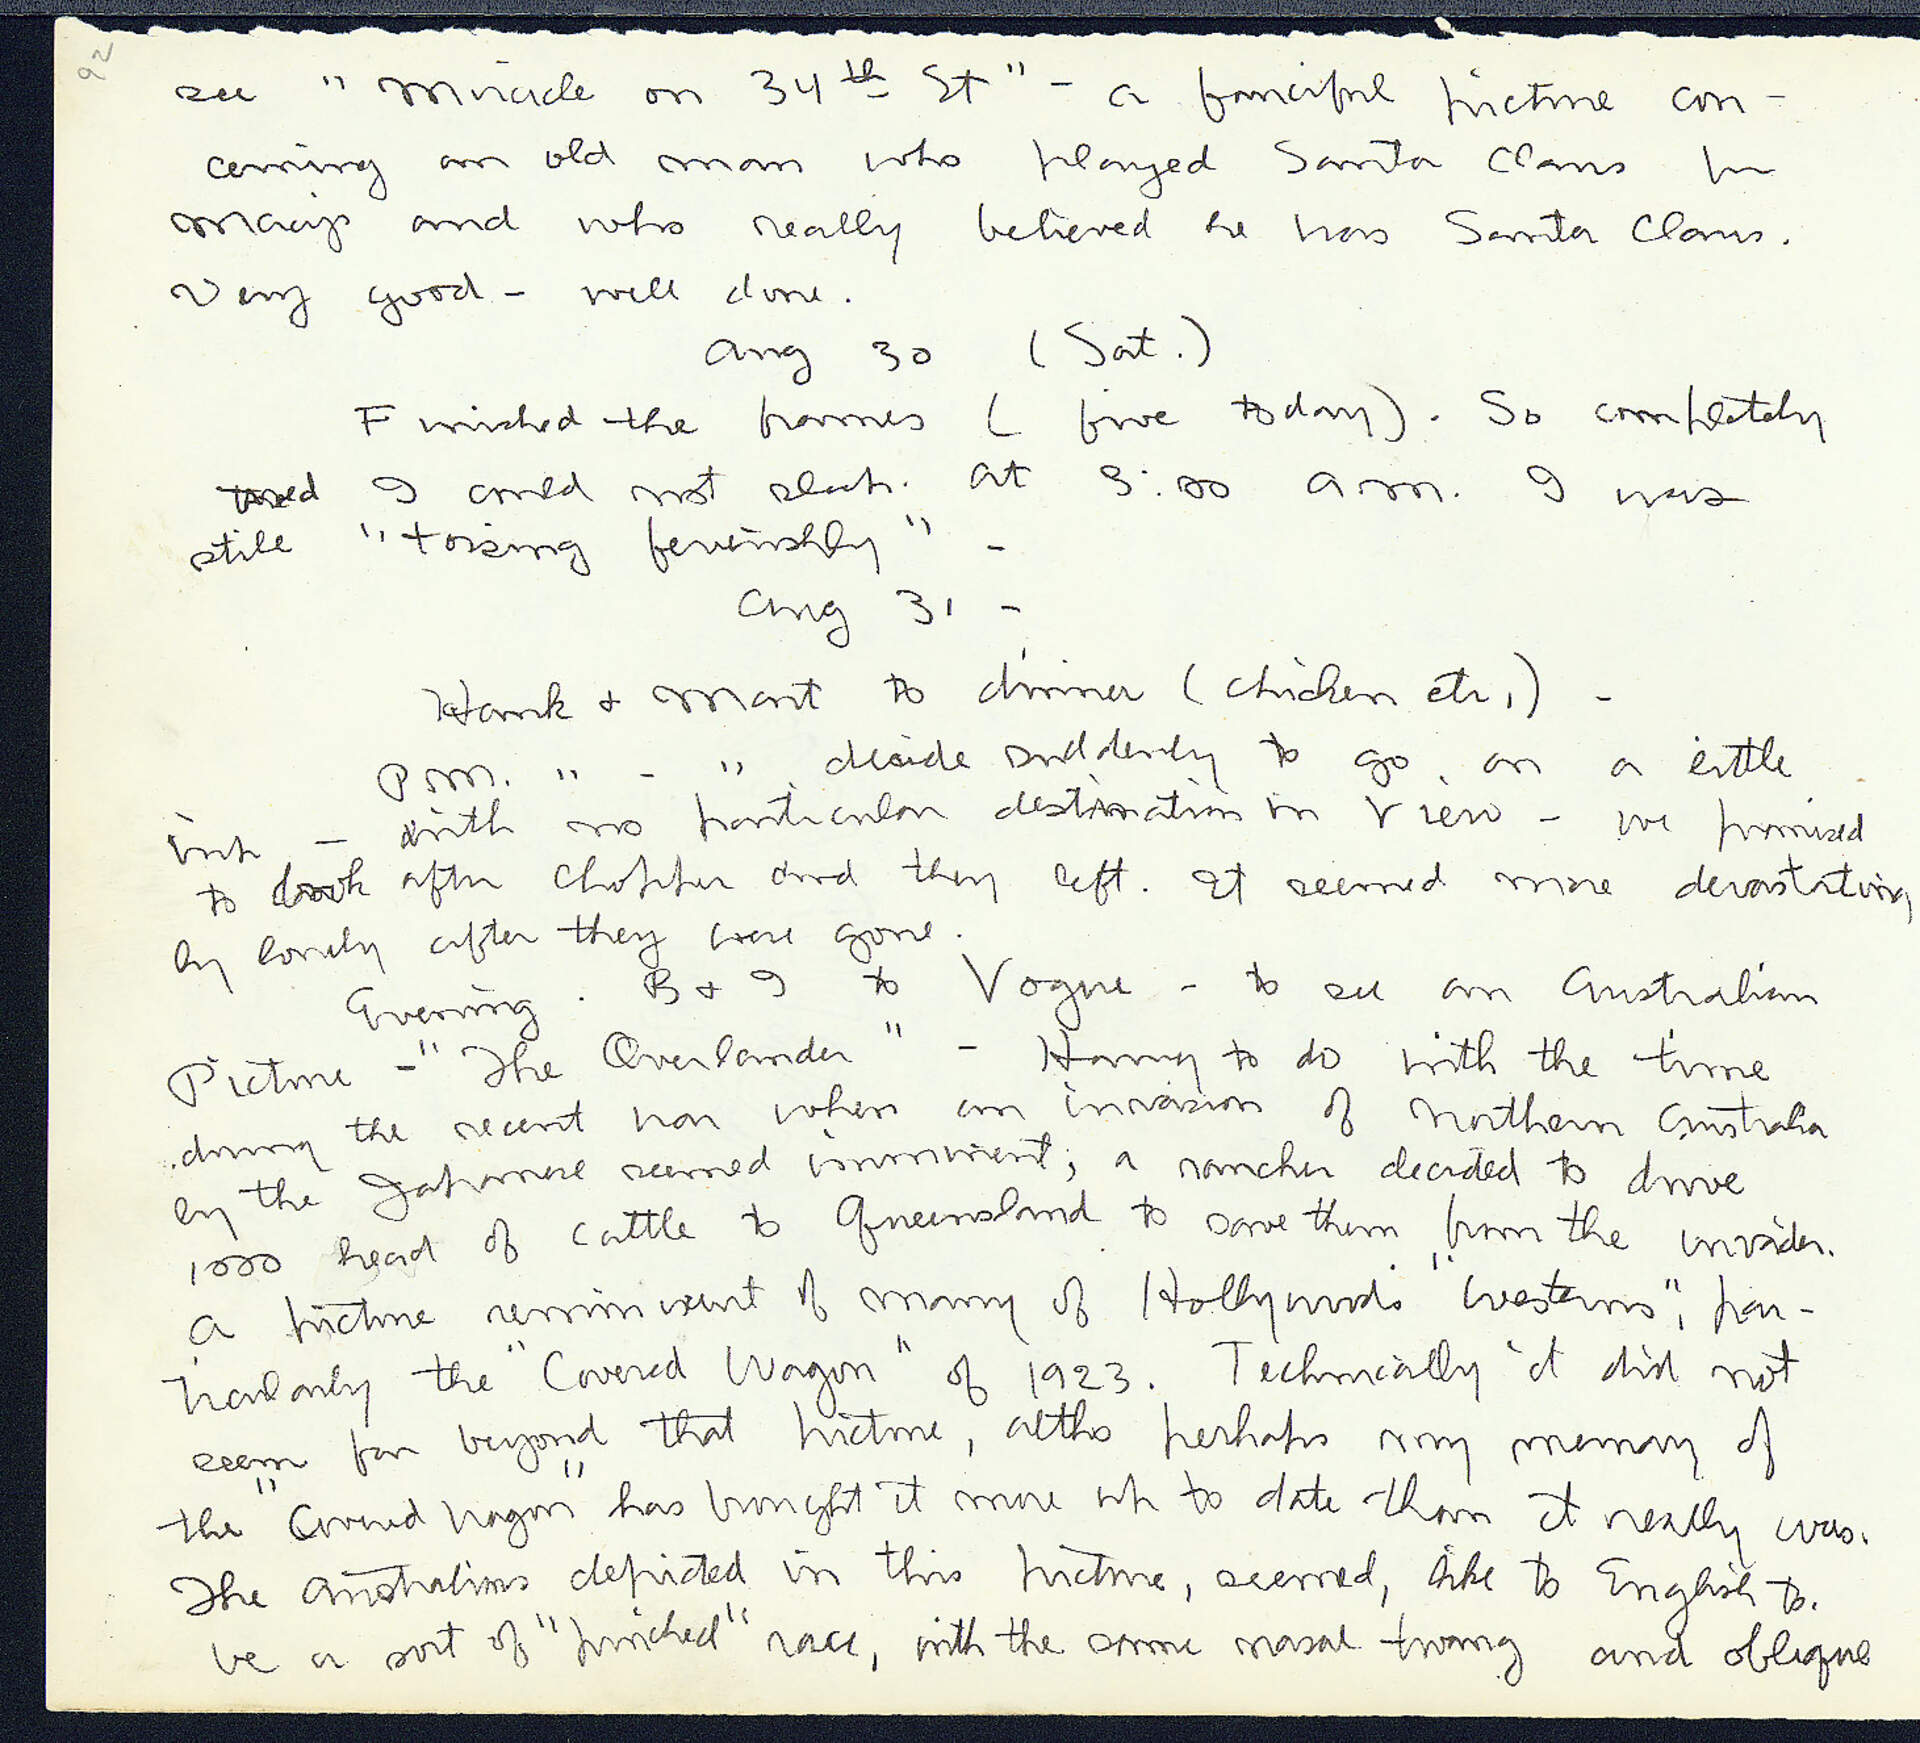 92
see "Miracle on 34th St" - a fanciful picture con-
cerning an old man who played Santa Claus for
Macys and who really believed he was Santa Claus.
Very good - well done.
Aug 30 (Sat.)
Finished the frames (five today). So completely
tired I could not sleep. At 3:00 A.M. I was
still "tossing feverishly" -
Aug 31 -
Hank & Mart to dinner (chicken etc.) -
P.M. " - " decide suddenly to go on a little
trip - with no particular destination in view - we promised
to look after Chopper and they left. It seemed more devastating
ly lonely after they were gone.
Evening. B & I to Vogue - to see an Australian
Picture - "The Overlander" - Having to do with the time
during the recent war when an invasion of Northern Australia
by the Japanese seemed imminent; a rancher decided to drive
1000 head of cattle to Queensland to save them from the invader.
A picture reminiscent of many of Hollywood's "Westerns", par-
ticularly the "Covered Wagon" of 1923. Technically it did not
seem far beyond that picture, altho perhaps my memory of
the "Covered Wagon" has brought it more up to date than it really was.
The Australians depicted in this picture, seemed, like to English to.
be a sort of "pinched" race, with the same nasal twang and oblique